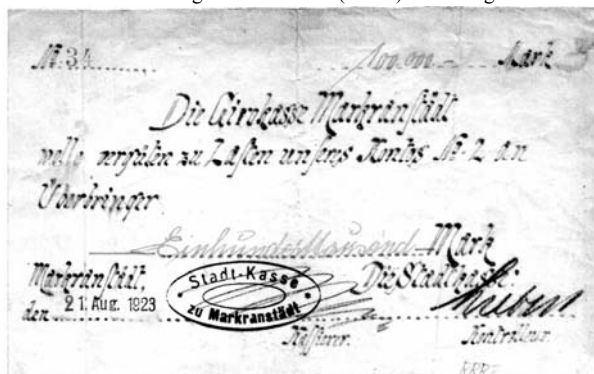 № 34 100.000.- Mark
Die Girokasse Markranstädt
wolle vergüten zu Lasten unseres Kontos № 2 an
Überbringer
Einhunderttausend Mark
Markranstädt, Die Stadtkasse:
den 21. Aug. 1923
Stadt-Kasse
zu Markranstädt
Kassierer. Kontrolleur.